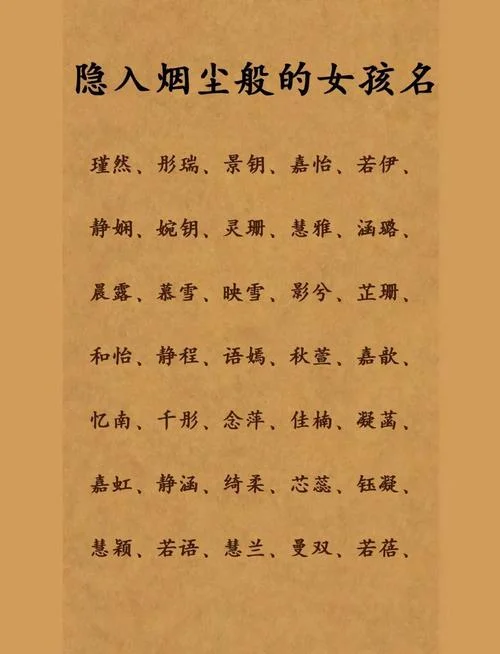 隐入烟尘般的女孩名
瑾然、彤瑞、景钥、嘉怡、若伊、
静娴、婉钥、灵珊、慧雅、涵璐、
晨露、慕雪、映雪、影兮、芷珊、
和怡、静程、语嫣、秋萱、嘉歆、
忆南、千彤、念萍、佳楠、凝菡、
嘉虹、静涵、绮柔、芯蕊、钰凝、
慧颖、若语、慧兰、曼双、若蓓、